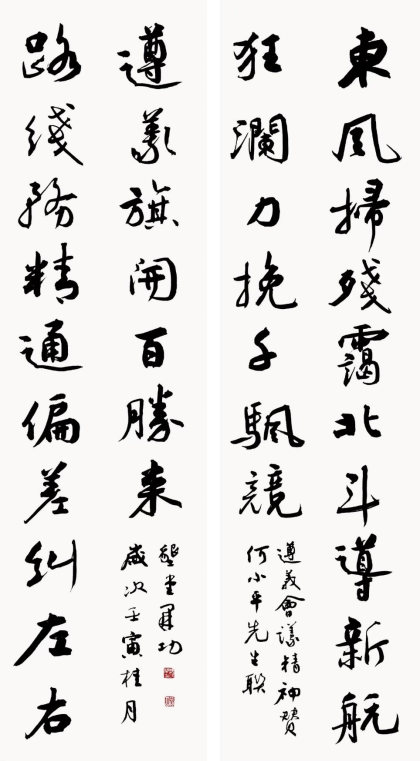 東風掃殘靄北斗導新航
狂瀾力挽千颿競
遵義會議精神贊
何小平先生联
路綫務精通偏差糾左右
遵義旗開百勝来
歲次壬寅桂月